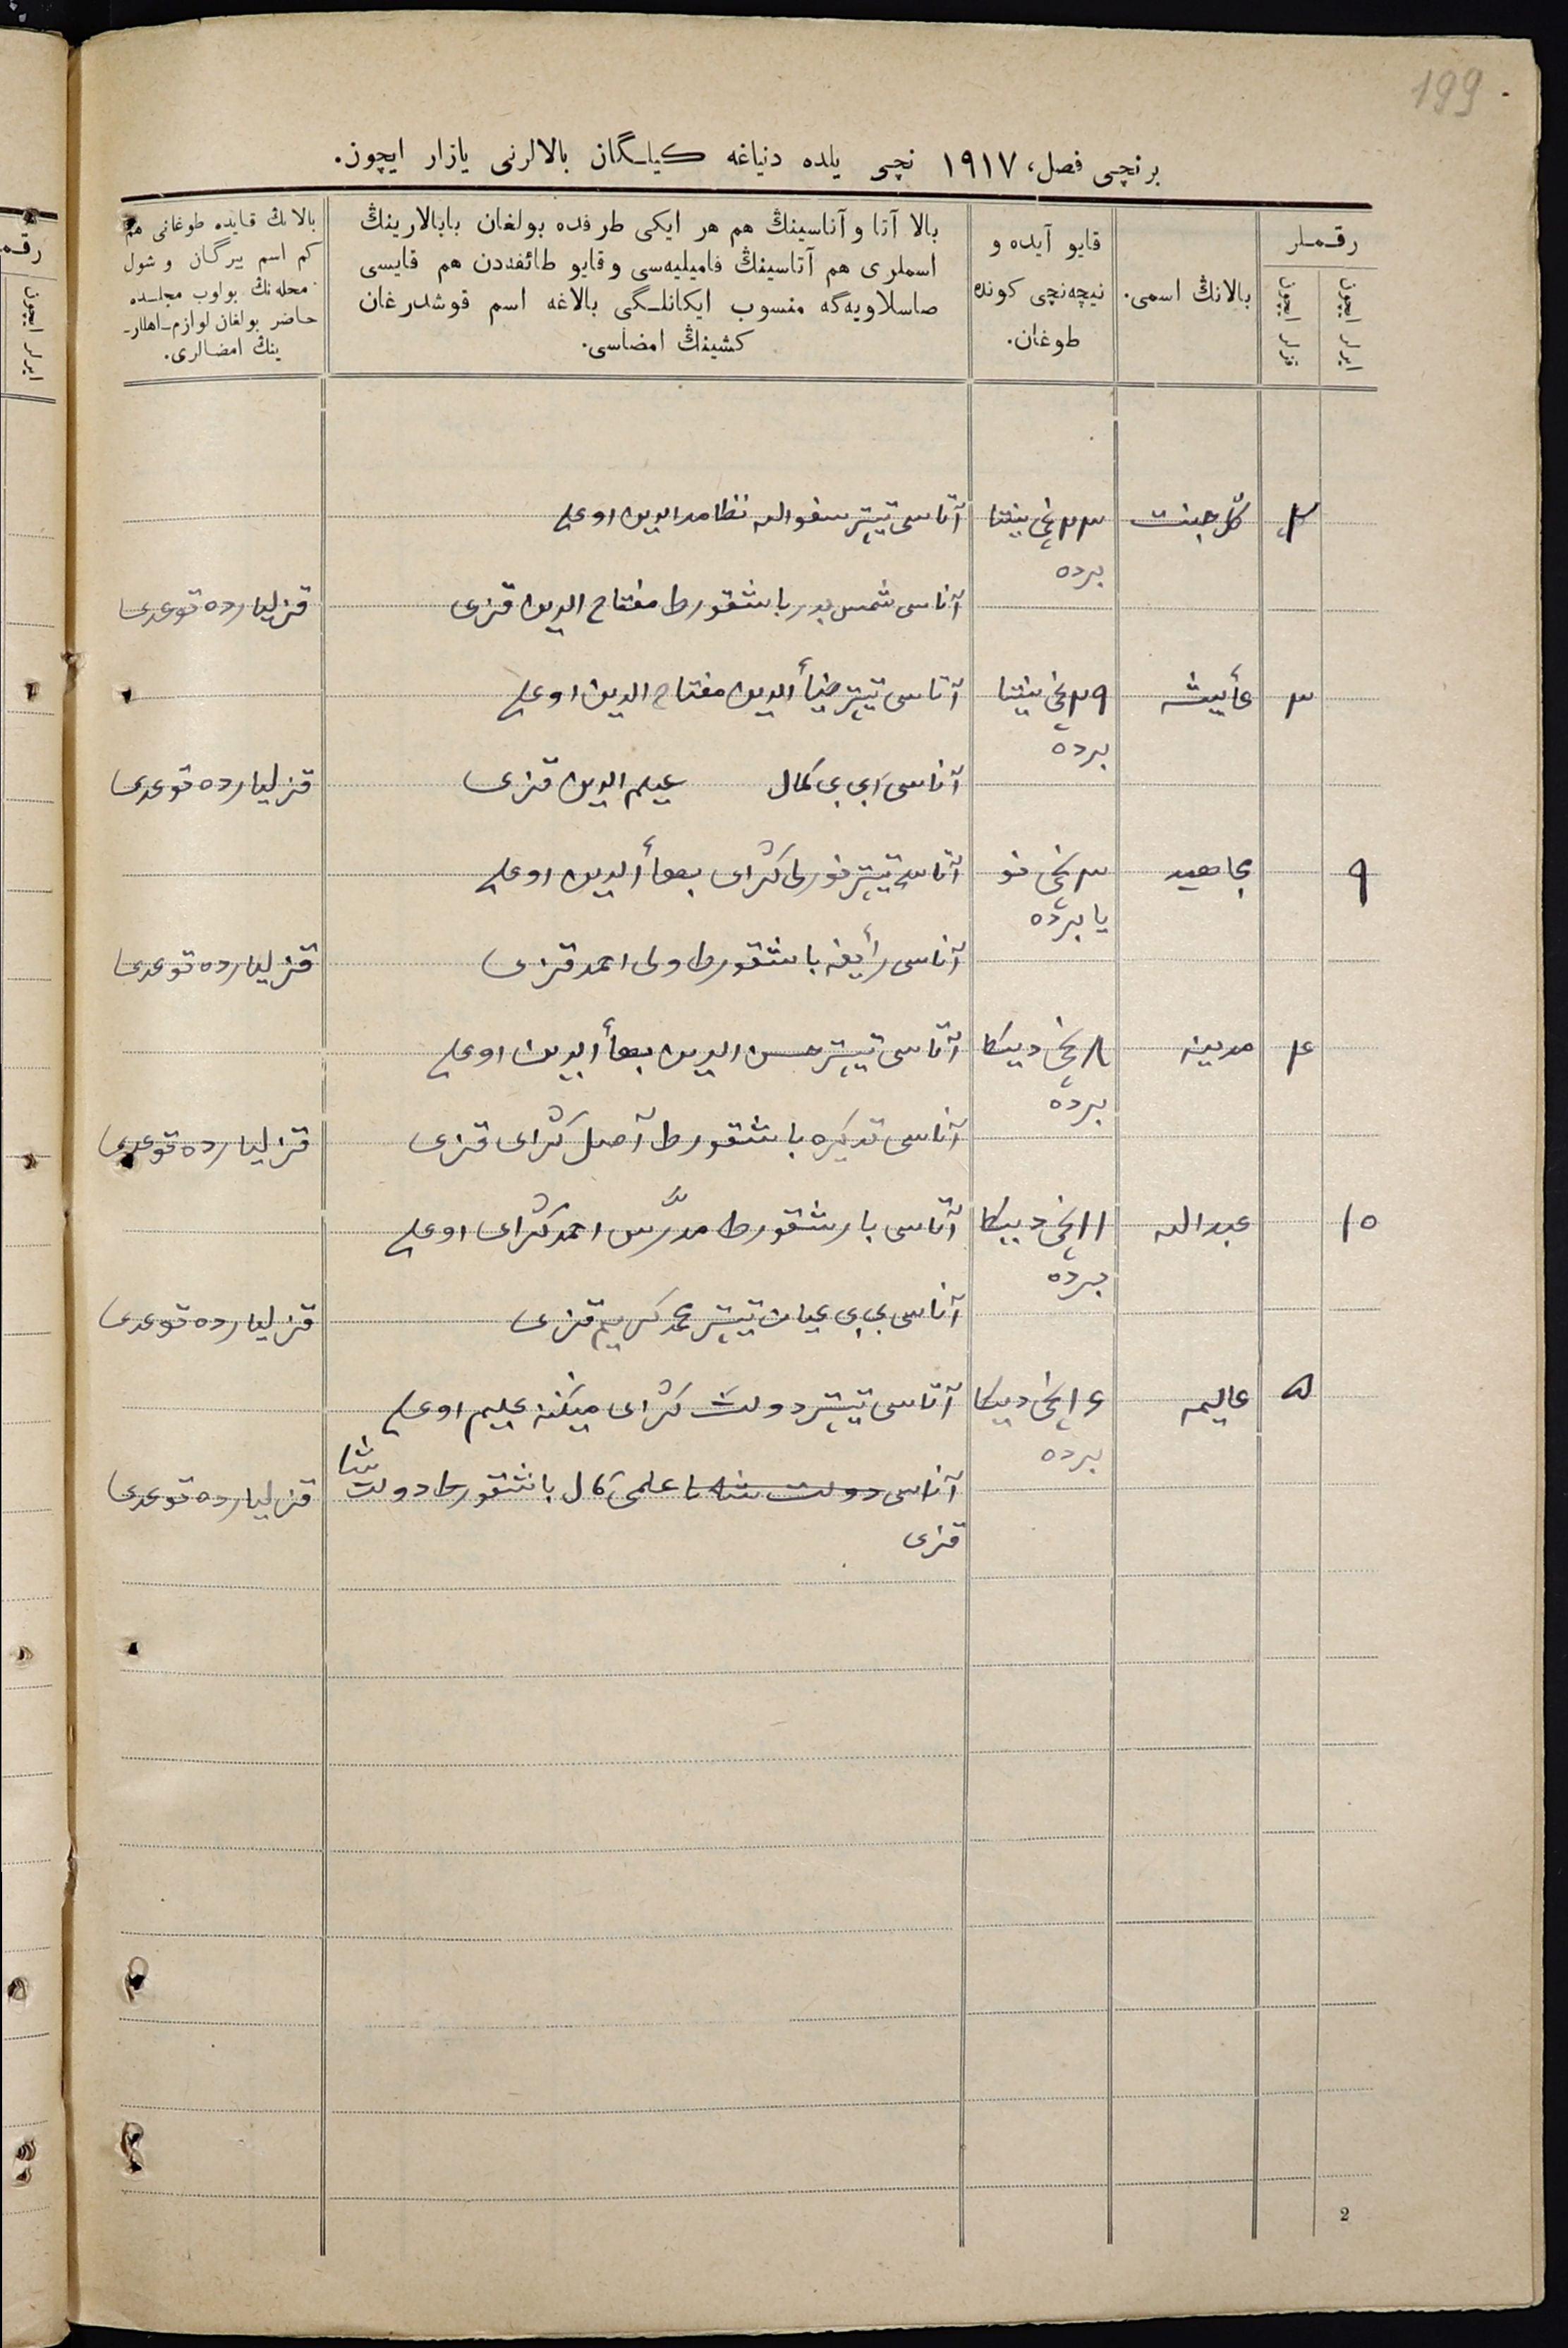 199
برنچی فصل، ١٩١٧ نچی یلده دنیاغه کیلگان بالالرنی یازار ایچون.
رقملر
ایرلر ایچون
قزلر ایچون
بالانڭ اسمی.
قایو آیده و
نیچه‌نچی کونده
طوغان.
بالا آتا و آناسینڭ هم هر ایکی طرفده بولغان بابالارینڭ
اسملری هم آتاسینڭ فامیلیه‌سی و قایو طائفه‌دن هم قایسی
صاسلاویه‌گه منسوب ایکانلگی بالاغه اسم قوشدرغان
کشینڭ امضاسی.
بالانڭ قایده طوغانی هم
کم اسم بیرگان و شول
محله‌نڭ بولوب مجلسده
حاضر بولغان لوازم اهللار-
ینڭ امضالری.
٢ گل جنت ٢٣ نچی سنتا
برده
آتاسی تیپتر نظام الدین اوغلی
آناسی شمس بدر باشقورط مفتاح الدین قزی
قزلیارده توغدی
٣ عأیشه ٢٩ نچی سنتا
برده
آتاسی تیپتر ضیأ الدین مفتاح الدین اوغلی
آناسی بی بی کمال علیم الدین قزی
قزلیارده توغدی
٩ مجاهید ٣ نچی نو
یابرده
آتاسی تیپتر بهأ الدین اوغلی
آناسی رأیفه باشقورط ولی احمد قزی
قزلیارده توغدی
۴ مدینه ٨ نچی دیکا
برده
آتاسی تیپتر حسن الدین بهأ الدین اوغلی
آناسی باشقورط آصل گرای قزی
قزلیارده توغدی
١٠ عبدالله ١١ نچی دیکا
برده
آتاسی باشقورط مدرّس احمد گرای اوغلی
آناسی بی بی تیپتر محمد کریم قزی
قزلیارده توغدی
۵ عالیمه ١۶ نچی دیکا
برده
آتاسی تیپتر دولت گرای اوغلی
آناسی دولت شا علمی کمال باشقورط دولت شا
قزی
قزلیارده توغدی
2
رقم
ایرلر ایچون